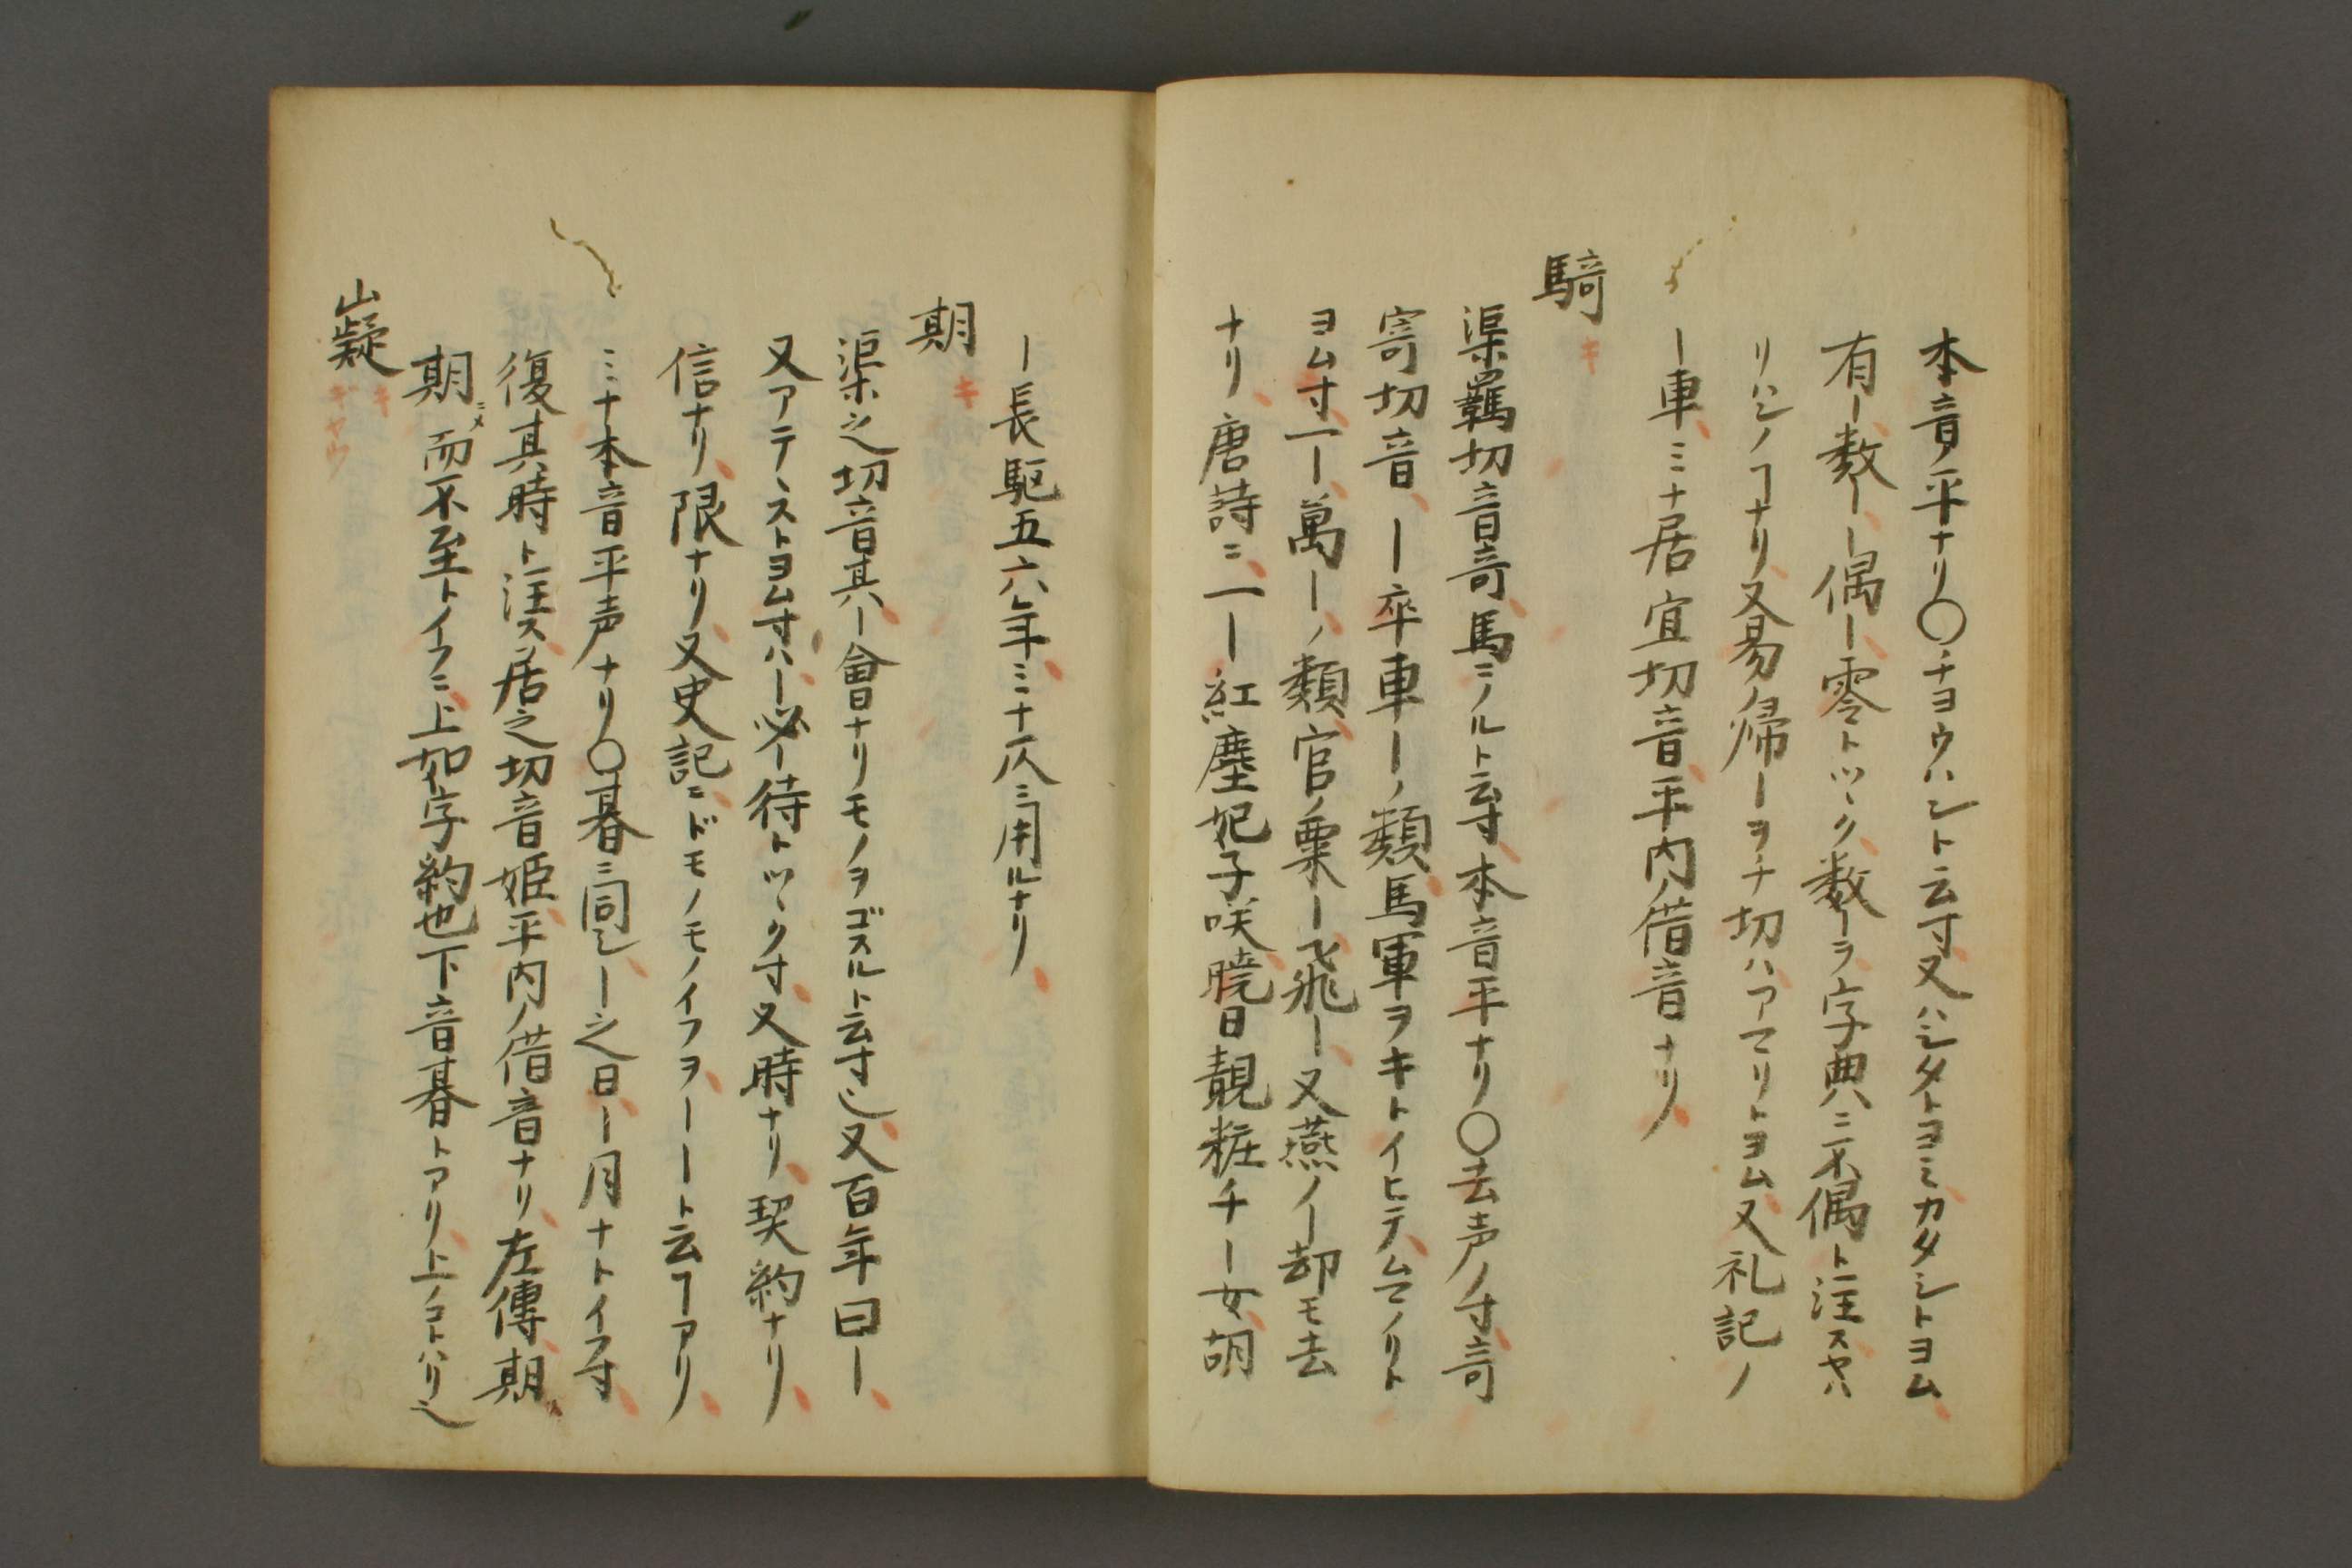 本音平ナリ〇チヨウハシト云寸又ハシタトヨミカタシトヨム
有ー数ー偶ー零トツヽク数ーヲ字典ニ不偶ト注スヤハ
リハシノヿナリ又易ノ帰ーヲチ切ハアマリトヨム又礼記ノ
ー車ミナ居宜切音平内ノ借音ナリ
騎キ
渠羈切音竒馬ニノルト云寸本音平ナリ〇去声ノ寸竒
寄切音ー卒車ーノ類馬軍ヲキトイヒテムマノリト
ヨム寸一ー萬ーノ類官ノ粟ー飛ー又燕ノー却モ去
ナリ唐詩ニ一ー紅塵妃子咲曉日靚粧千ー女胡
ー長駆五六年ミナ仄ニ用ルナリ
期キ
渠之切音其ハー會ナリモノヲゴスルト云寸也又百年曰ー
又アテヽストヨム寸ハー必ー待トツヽク寸又時ナリ契約ナリ
信ナリ限ナリ又史記ニドモノモノイフヲーート云ヿアリ
ミナ本音平声ナリ〇朞ニ同シー之日ー月ナトイフ寸
復其時ト注ス居之切音姫平内ノ借音ナリ左傳期
期ニメ而不至トイフニ上如字約也下音朞トアリ上ノコトハリ也
嶷キギヤウ